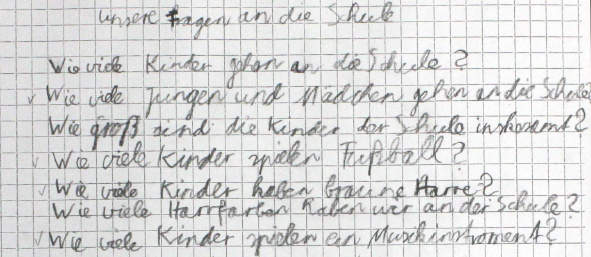 unsere Fragen an die Schule
Wie viele Kinder gehen an die Schule?
Wie viele Jungen und Mädchen gehen an die Schule
Wie groß sind die Kinder der Schule inskesemt?
Wie viele Kinder spielen Fußball?
Wie viele Kinder haben braune Harre?
Wie viele Harrfarben haben wir an der Schule?
Wie viele Kinder spielen ein Musikinstroment?